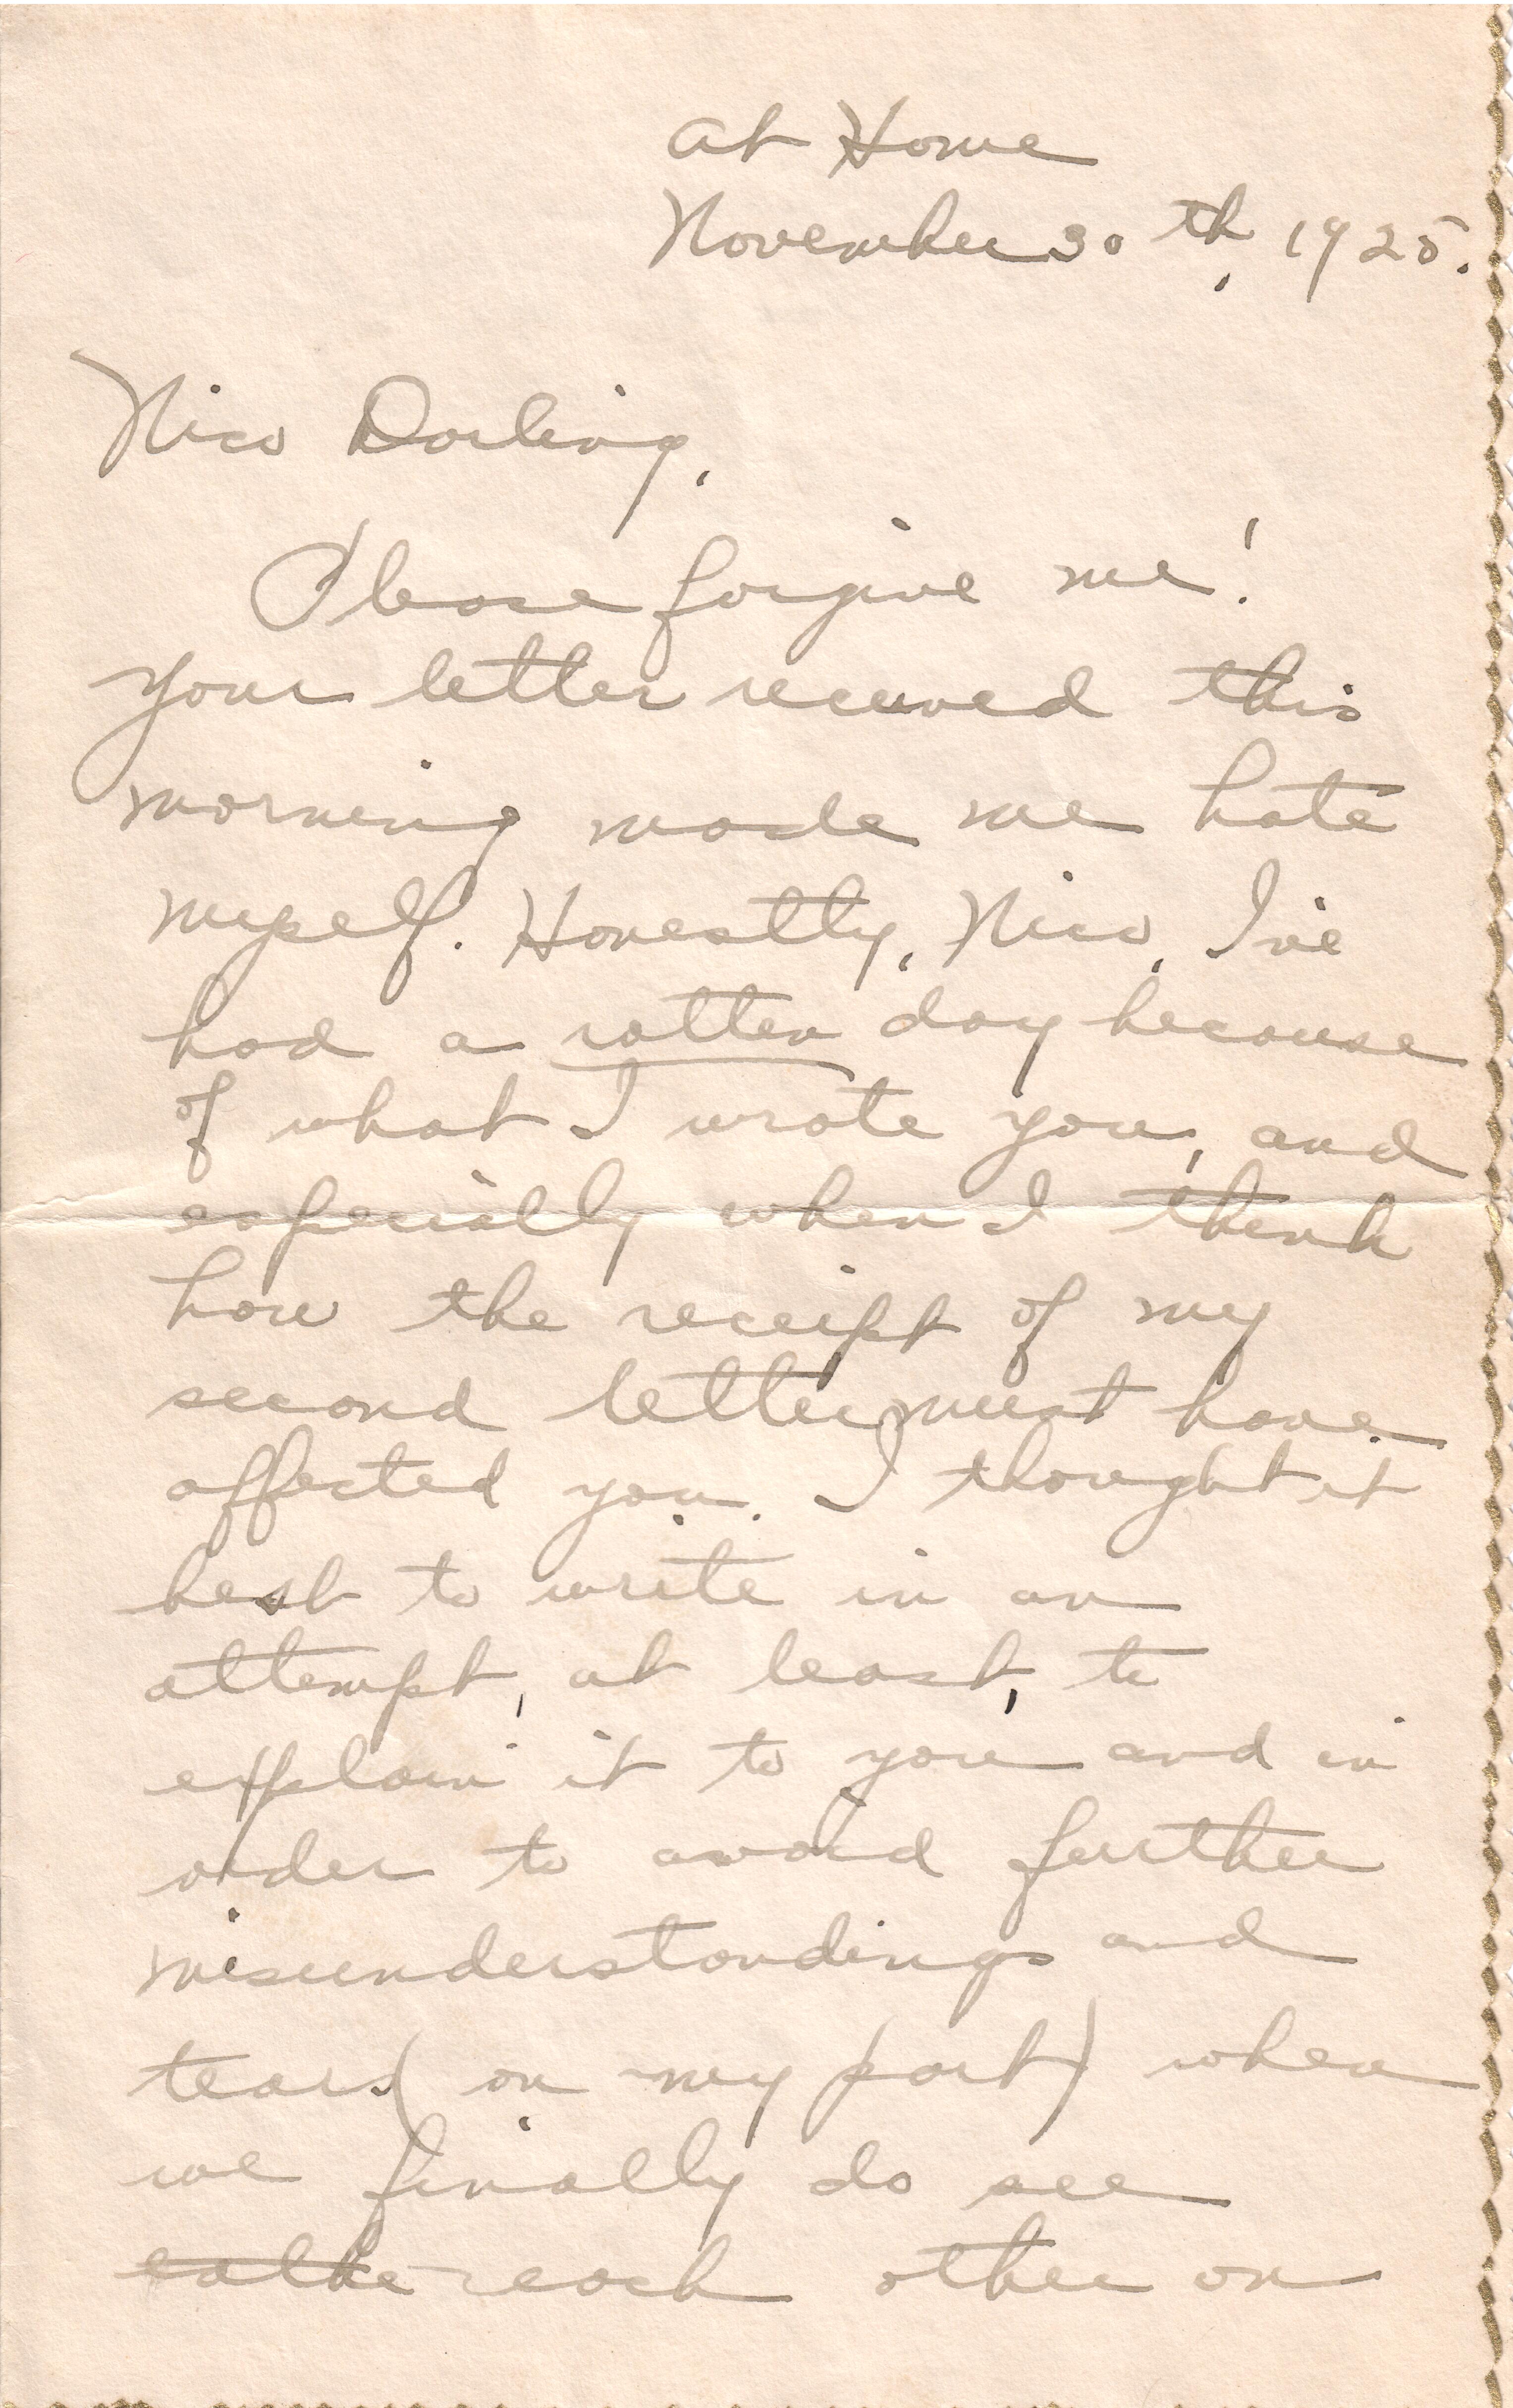 At Home
November 30th, 1925.
Nico Darling,
Please forgive me!
Your letter received this
morning made me hate
myself. Honestly, Nico, I've
had a rotten day because
of what I wrote you, and
especially when I think
how the receipt of my
second letter must have
affected you. I thought it
best to write in an
attempt, at least, to
explain it to you and in
order to avoid further
misunderstandings and
tears (on my part) when
we finally do see
each other on